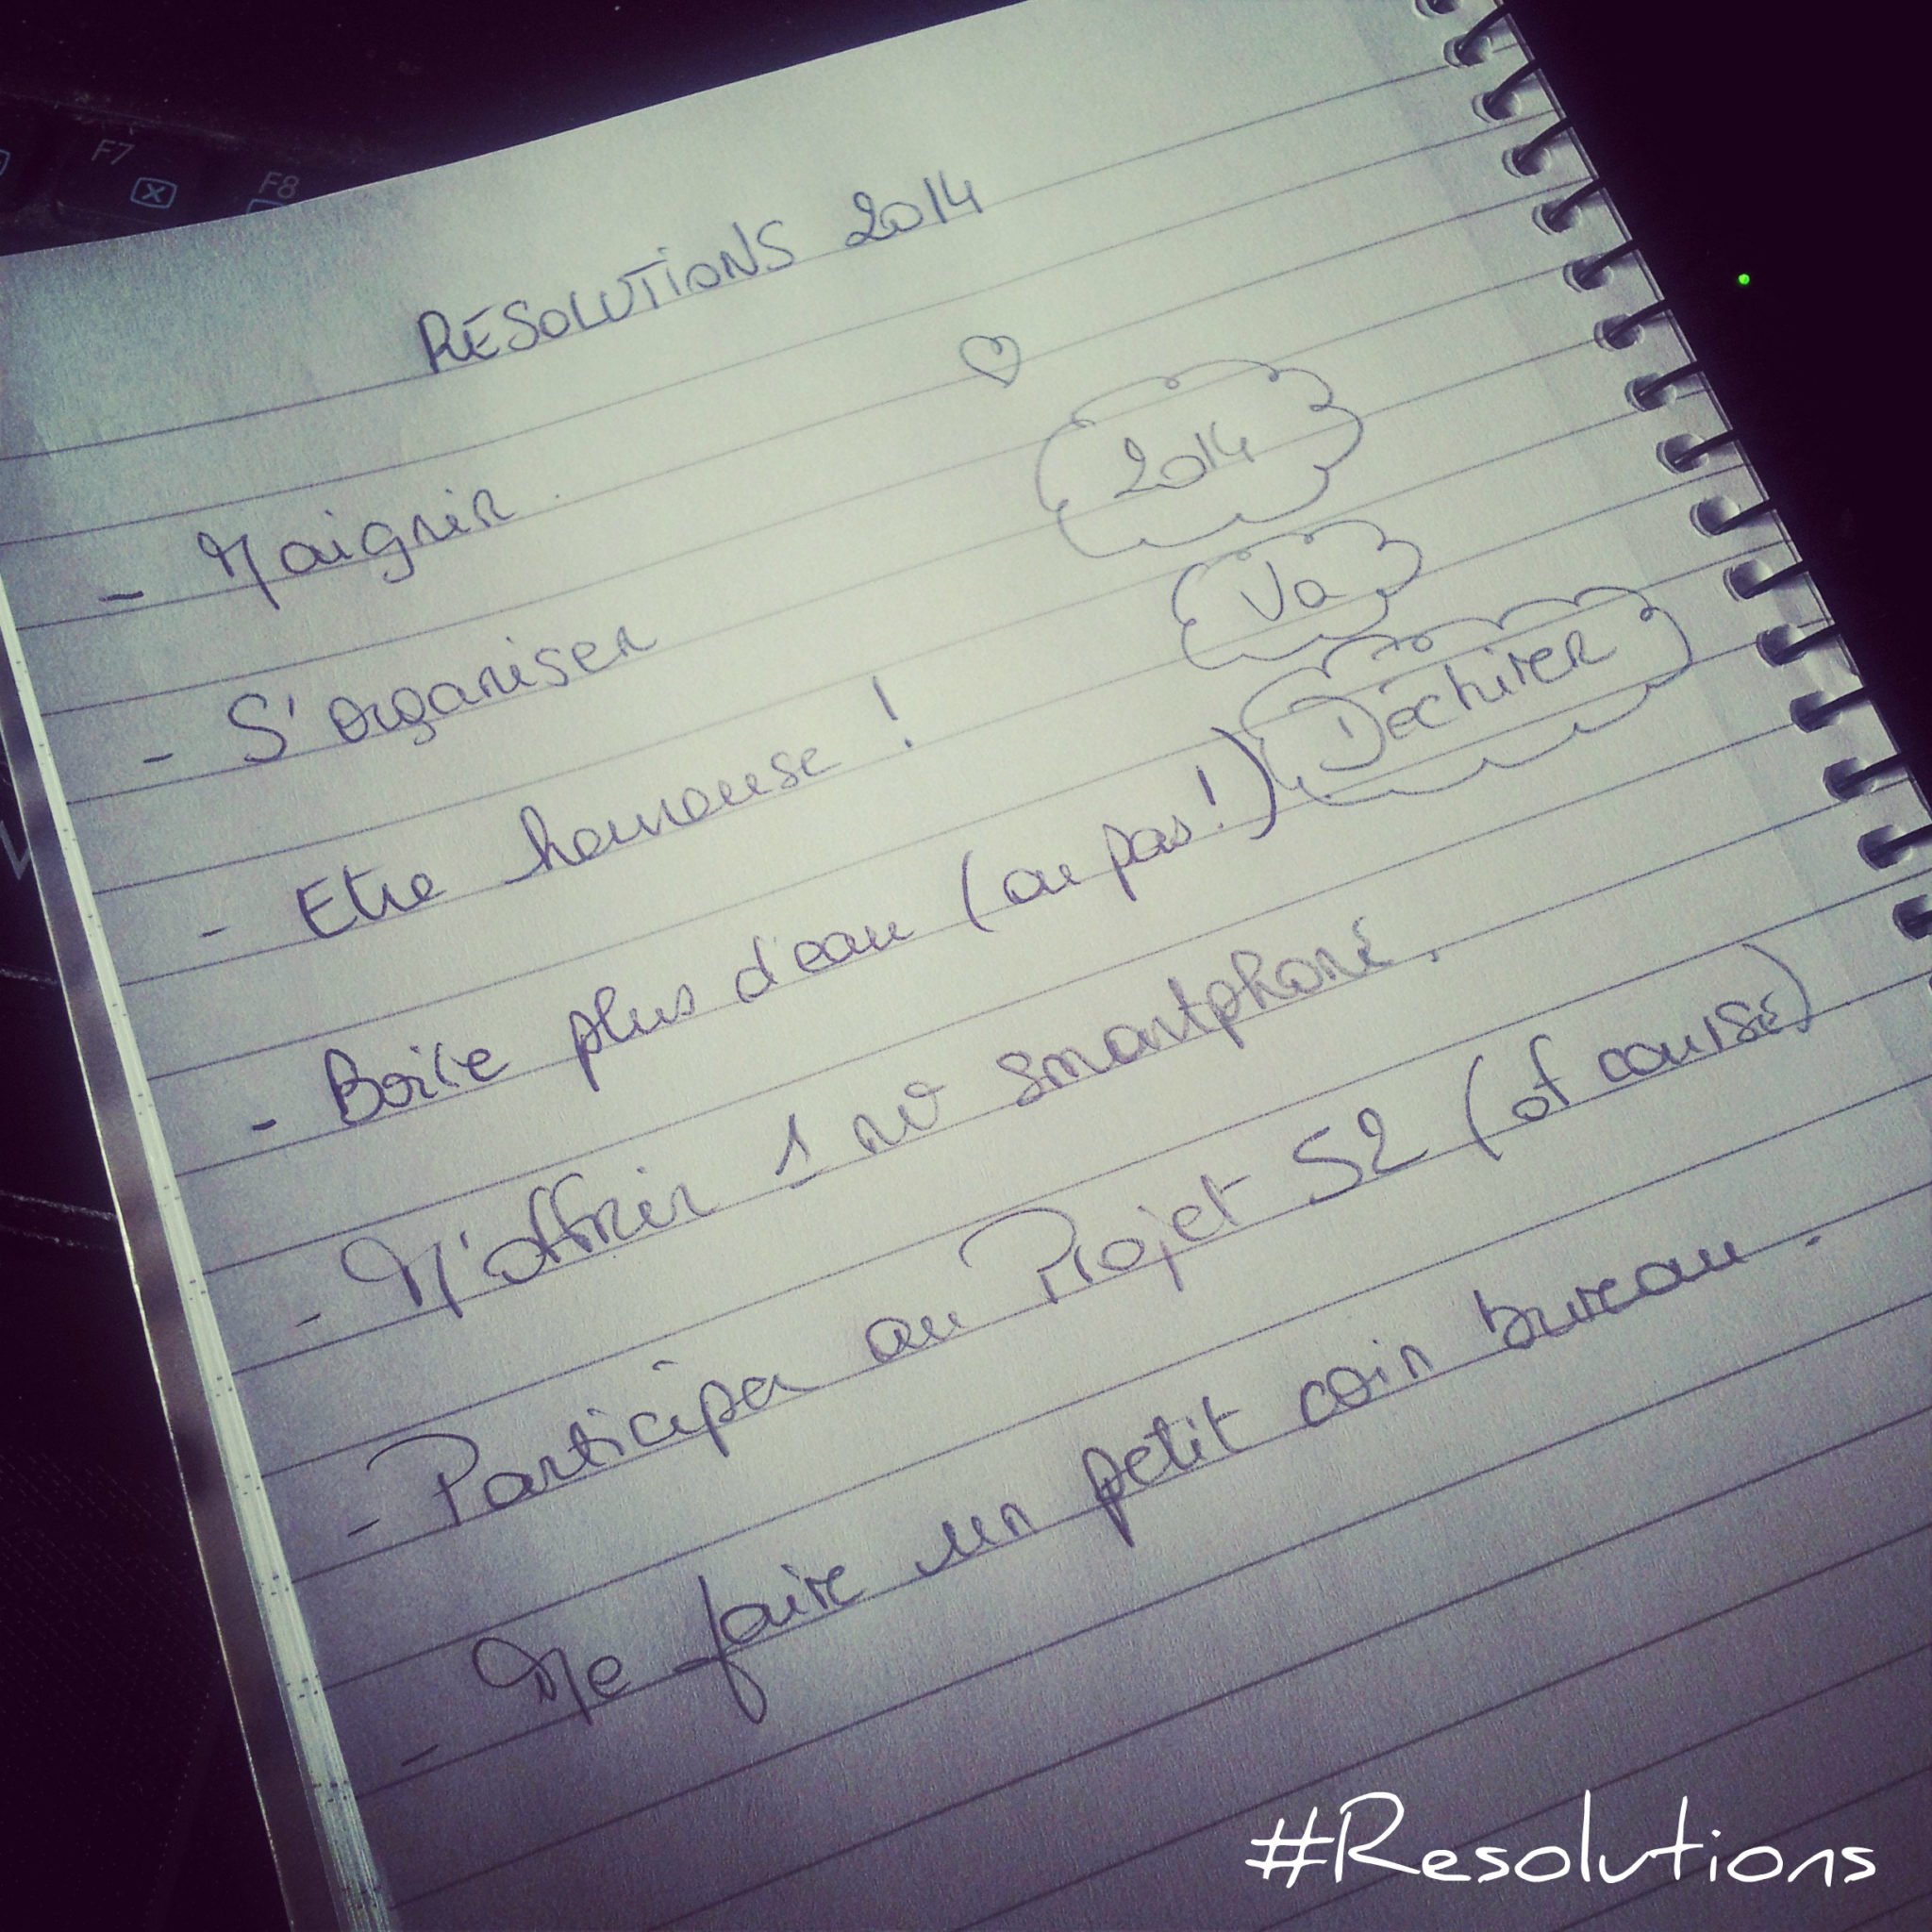 F7
F8
RESOLUTIONS 2014
2014
Va
Déchirer
- Maigrir
- S'organiser
- Etre heureuse !
- Boire plus d'eau (ou pas!)
- M'offrir 1 nv smartphone.
- Participer au Projet 52 (of course)
- Me faire un petit coin bureau.
#Resolutions